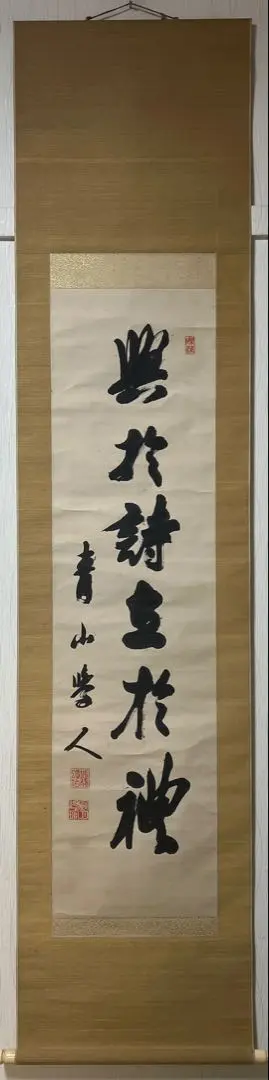 興於詩立於禮
青山學人